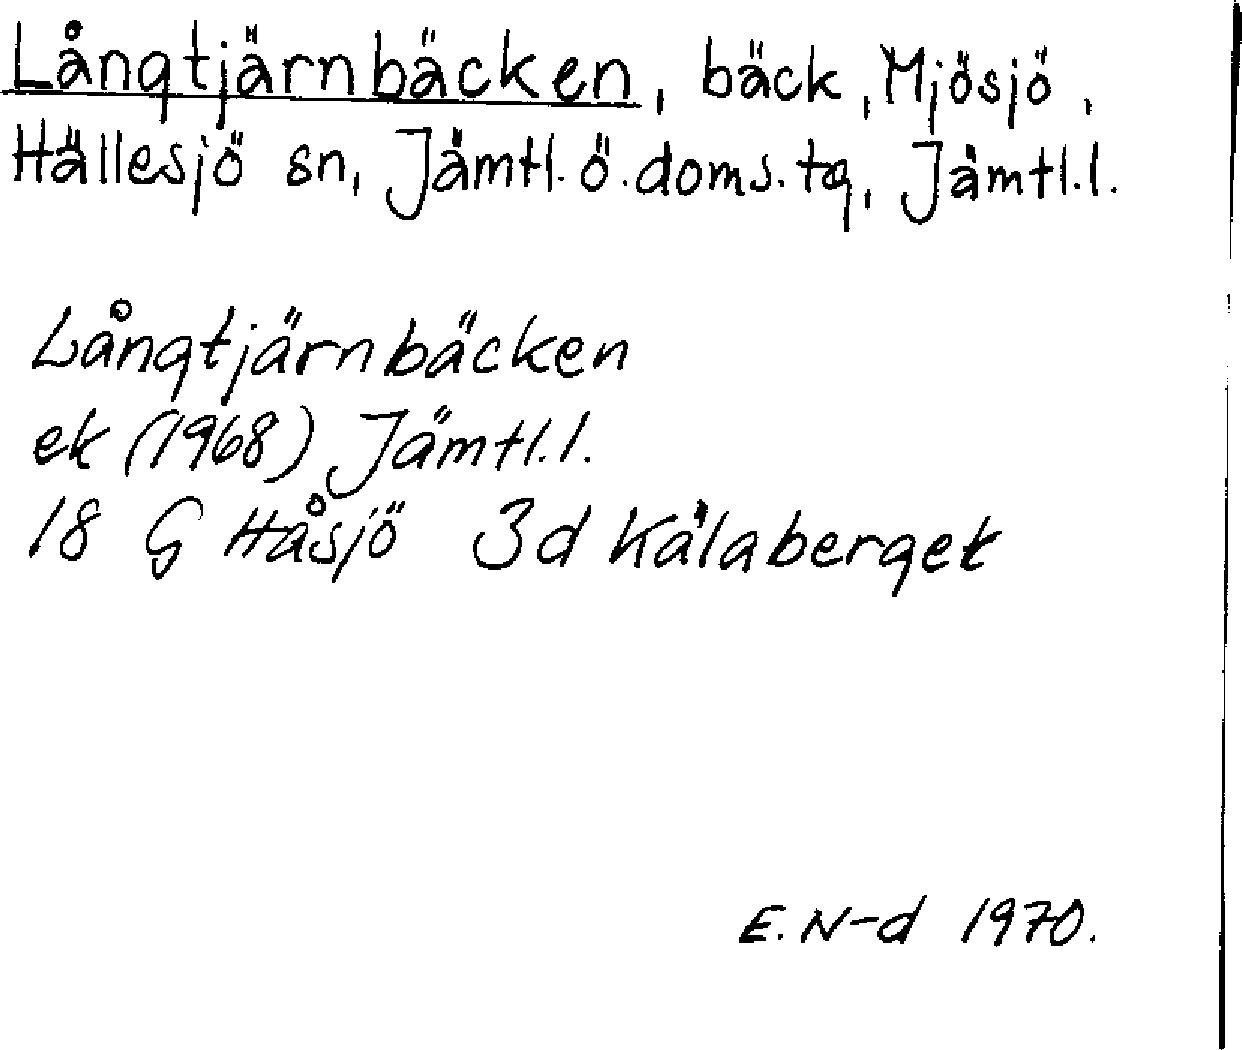 Långtjärnbäcken, bäck, Mjösjö,
Hällesjö sn, Jämtl. ö. doms. tg, Jämtl. l.
Långtjärnbäcken
ek (1968) Jämtl. l.
18 G Håsjö 3d Kälaberget
E. N-d 1970.